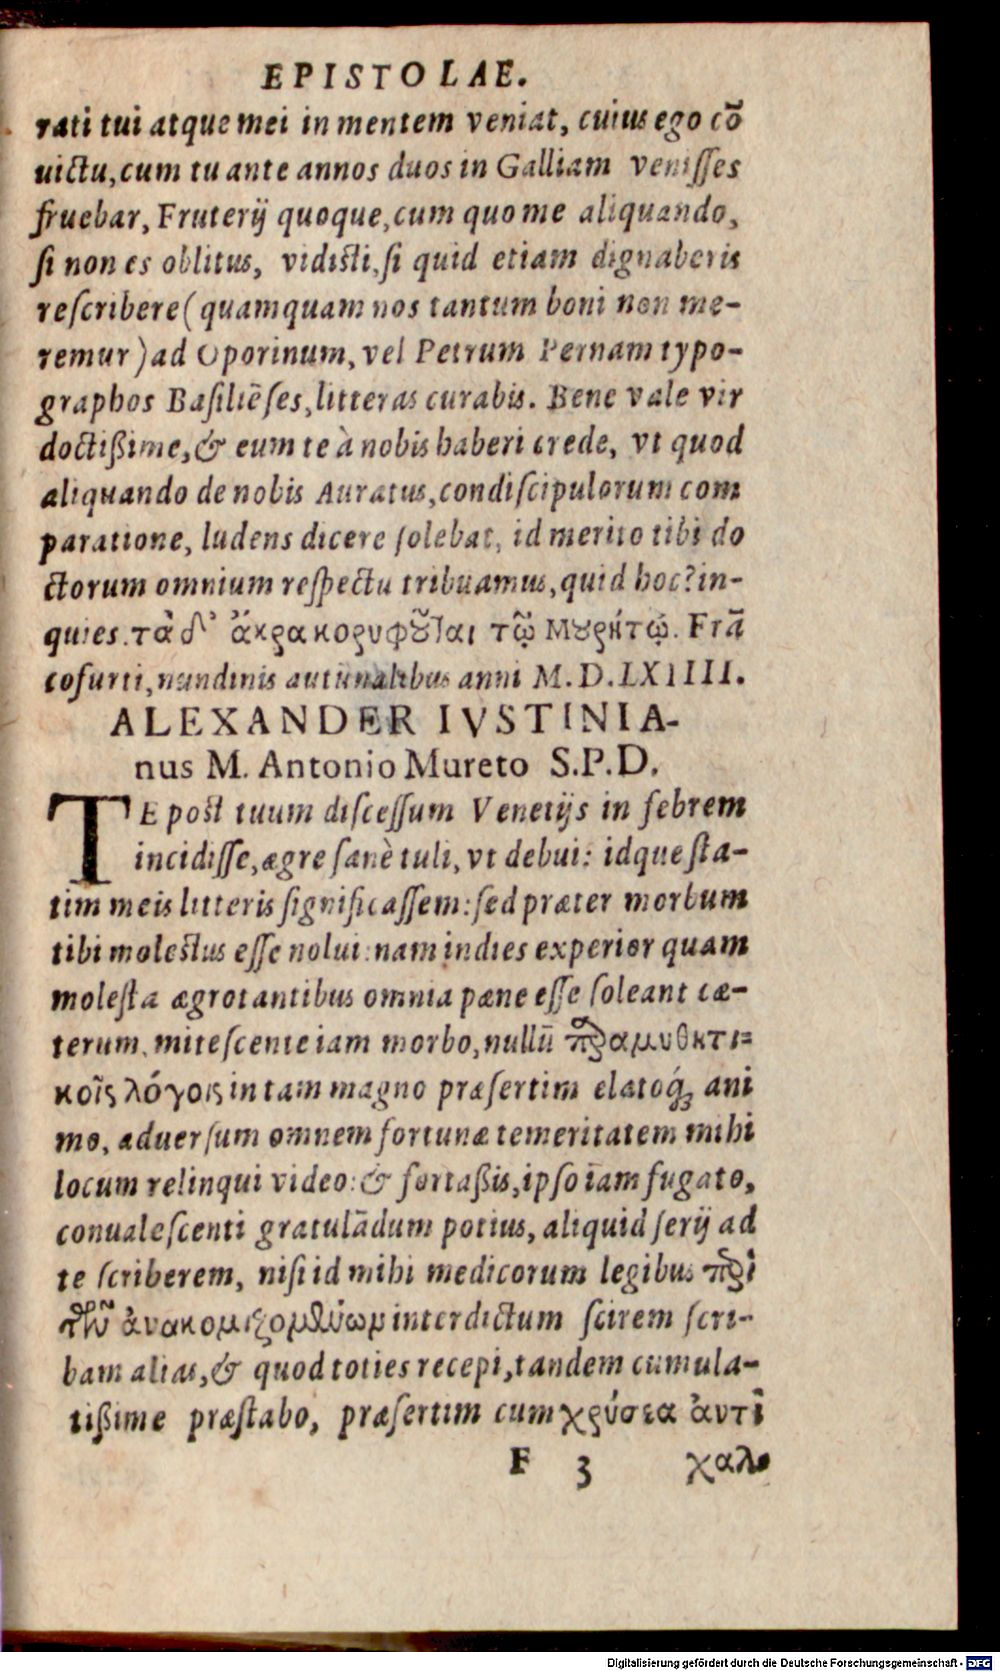 EPISTOLAE.
rati tui atque mei in mentem veniat, cuius ego cō
uictu, cum tu ante annos duos in Galliam venisses
fruebar, Fruterij quoque, cum quo me aliquando,
si non es oblitus, vidisti, si quid etiam dignaberis
rescribere (quamquam nos tantum boni non me-
remur) ad Oporinum, vel Petrum Pernam typo-
graphos Basiliēses, litteras curabis. Bene vale vir
doctißime, & eum te à nobis haberi crede, vt quod
aliquando de nobis Auratus, condiscipulorum com
paratione, ludens dicere solebat, id merito tibi do
ctorum omnium respectu tribuamus, quid hoc? in-
quies. τὰ δ' ἄκρα κορυφοῦται τῷ Μουρήτῳ. Frā
cofurti, nundinis autūnalibus anni M.D.LXIIII.
ALEXANDER IVSTINIA-
nus M. Antonio Mureto S.P.D.
TE post tuum discessum Venetijs in febrem
incidisse, ægre sanè tuli, vt debui: idque sta-
tim meis litteris significassem: sed præter morbum
tibi molestus esse nolui: nam indies experior quam
molesta ægrotantibus omnia pæne esse soleant cæ-
terum. mitescente iam morbo, nullū παραμυθητι-
κοῖς λόγοις in tam magno præsertim elatoq́ ani
mo, aduersum omnem fortunæ temeritatem mihi
locum relinqui video: & fortaßis, ipso iam fugato,
conualescenti gratulādum potius, aliquid serij ad
te scriberem, nisi id mihi medicorum legibus περὶ
τῶν ἀνακομιζομένων interdictum scirem scri-
bam alias, & quod toties recepi, tandem cumula-
tißime præstabo, præsertim cum χρύσεα ἀντὶ
F 3 χαλ
Digitalisierung gefördert durch die Deutsche Forschungsgemeinschaft - DFG